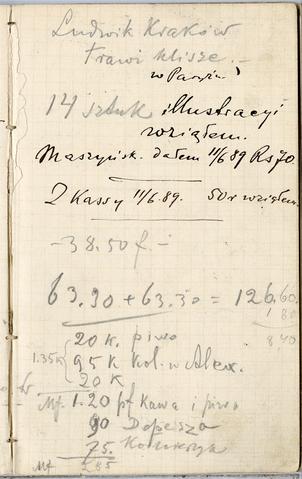 Ludwik Kraków
trawi klisze. –
w Paryżu
14 sztuk illustracyi
wziąłem.
Maszyńsk. dałem 11/6 89 Rs 70
Z Kassy 11/6.89. 50 r wziąłem.
– 38.50 f. –
63.30 + 63.30 = 126.60.
1 80
8,40
20 k. piwo
1.35 K
95 K kol. w Alex.
20 K
Mf. 1.20 pf Kawa i piwo
90 Depesza
75.
Mf 2.85